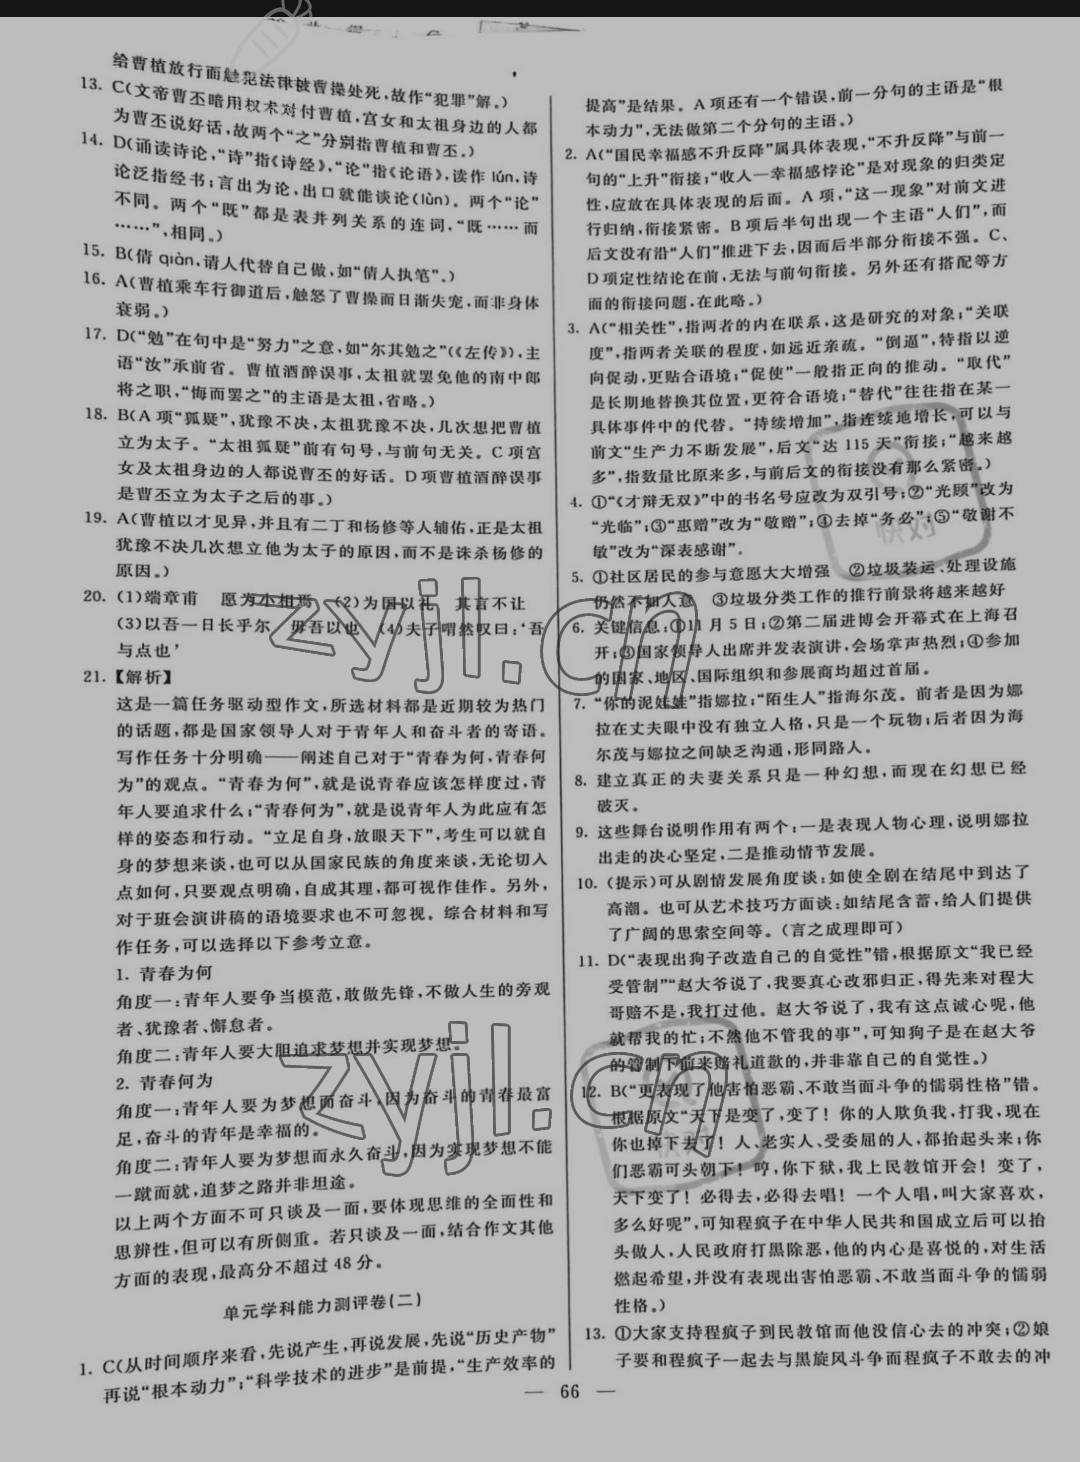 给曹植放行而触犯法律被曹操处死,故作“犯罪”解。)
13. C(文帝曹丕暗用权术对付曹植,宫女和太祖身边的人都
为曹丕说好话,故两个“之”分别指曹植和曹丕。)
14. D(诵读诗论,“诗”指《诗经》,“论”指《论语》,读作 lún,诗
论泛指经书;言出为论,出口就能谈论(lùn)。两个“论”
不同。两个“既”都是表并列关系的连词,“既……而
……”,相同。)
15. B(倩 qiàn,请人代替自己做,如“倩人执笔”。)
16. A(曹植乘车行御道后,触怒了曹操而日渐失宠,而非身体
衰弱。)
17. D(“勉”在句中是“努力”之意,如“尔其勉之”(《左传》),主
语“汝”承前省。曹植酒醉误事,太祖就罢免他的南中郎
将之职,“悔而罢之”的主语是太祖,省略。)
18. B(A 项“狐疑”,犹豫不决,太祖犹豫不决,几次想把曹植
立为太子。“太祖狐疑”前有句号,与前句无关。C 项宫
女及太祖身边的人都说曹丕的好话。D 项曹植酒醉误事
是曹丕立为太子之后的事。)
19. A(曹植以才见异,并且有二丁和杨修等人辅佐,正是太祖
犹豫不决几次想立他为太子的原因,而不是诛杀杨修的
原因。)
20. (1)端章甫 愿为小相焉 (2)为国以礼 其言不让
(3)以吾一日长乎尔 毋吾以也 (4)夫子喟然叹曰:‘吾
与点也’
21.【解析】
这是一篇任务驱动型作文,所选材料都是近期较为热门
的话题,都是国家领导人对于青年人和奋斗者的寄语。
写作任务十分明确——阐述自己对于“青春为何,青春何
为”的观点。“青春为何”,就是说青春应该怎样度过,青
年人要追求什么;“青春何为”,就是说青年人为此应有怎
样的姿态和行动。“立足自身,放眼天下”,考生可以就自
身的梦想来谈,也可以从国家民族的角度来谈,无论切入
点如何,只要观点明确,自成其理,都可视作佳作。另外,
对于班会演讲稿的语境要求也不可忽视。综合材料和写
作任务,可以选择以下参考立意。
1. 青春为何
角度一:青年人要争当模范,敢做先锋,不做人生的旁观
者、犹豫者、懈怠者。
角度二:青年人要大胆追求梦想并实现梦想。
2. 青春何为
角度一:青年人要为梦想而奋斗,因为奋斗的青春最富
足,奋斗的青年是幸福的。
角度二:青年人要为梦想而永久奋斗,因为实现梦想不能
一蹴而就,追梦之路并非坦途。
以上两个方面不可只谈及一面,要体现思维的全面性和
思辨性,但可以有所侧重。若只谈及一面,结合作文其他
方面的表现,最高分不超过 48 分。
单元学科能力测评卷(二)
1. C(从时间顺序来看,先说产生,再说发展,先说“历史产物”
再说“根本动力”;“科学技术的进步”是前提,“生产效率的
提高”是结果。A 项还有一个错误,前一分句的主语是“根
本动力”,无法做第二个分句的主语。)
2. A(“国民幸福感不升反降”属具体表现,“不升反降”与前一
句的“上升”衔接;“收入—幸福感悖论”是对现象的归类定
性,应放在具体表现的后面。A 项,“这一现象”对前文进
行归纳,衔接紧密。B 项后半句出现一个主语“人们”,而
后文没有沿“人们”推进下去,因而后半部分衔接不强。C、
D 项定性结论在前,无法与前句衔接。另外还有搭配等方
面的衔接问题,在此略。)
3. A(“相关性”,指两者的内在联系,这是研究的对象;“关联
度”,指两者关联的程度,如远近亲疏。“倒逼”,特指以逆
向促动,更贴合语境;“促使”一般指正向的推动。“取代”
是长期地替换其位置,更符合语境;“替代”往往指在某一
具体事件中的代替。“持续增加”,指连续地增长,可以与
前文“生产力不断发展”,后文“达 115 天”衔接;“越来越
多”,指数量比原来多,与前后文的衔接没有那么紧密。)
4. ①“《才辩无双》”中的书名号应改为双引号;②“光顾”改为
“光临”;③“惠赠”改为“敬赠”;④去掉“务必”;⑤“敬谢不
敏”改为“深表感谢”。
5. ①社区居民的参与意愿大大增强 ②垃圾装运、处理设施
仍然不如人意 ③垃圾分类工作的推行前景将越来越好
6. 关键信息:①11 月 5 日;②第二届进博会开幕式在上海召
开;③国家领导人出席并发表演讲,会场掌声热烈;④参加
的国家、地区、国际组织和参展商均超过首届。
7. “你的泥娃娃”指娜拉;“陌生人”指海尔茂。前者是因为娜
拉在丈夫眼中没有独立人格,只是一个玩物;后者因为海
尔茂与娜拉之间缺乏沟通,形同路人。
8. 建立真正的夫妻关系只是一种幻想,而现在幻想已经
破灭。
9. 这些舞台说明作用有两个:一是表现人物心理,说明娜拉
出走的决心坚定,二是推动情节发展。
10. (提示)可从剧情发展角度谈:如使全剧在结尾中到达了
高潮。也可从艺术技巧方面谈:如结尾含蓄,给人们提供
了广阔的思索空间等。(言之成理即可)
11. D(“表现出狗子改造自己的自觉性”错,根据原文“我已经
受管制”“赵大爷说了,我要真心改邪归正,得先来对程大
哥赔不是,我打过他。赵大爷说了,我有这点诚心呢,他
就帮我的忙;不然他不管我的事”,可知狗子是在赵大爷
的管制下前来赔礼道歉的,并非靠自己的自觉性。)
12. B(“更表现了他害怕恶霸、不敢当面斗争的懦弱性格”错。
根据原文“天下是变了,变了！你的人欺负我,打我,现在
你也掉下去了！人、老实人、受委屈的人,都抬起头来;你
们恶霸可头朝下！哼,你下狱,我上民教馆开会！变了,
天下变了！必得去,必得去唱！一个人唱,叫大家喜欢,
多么好呢”,可知程疯子在中华人民共和国成立后可以抬
头做人,人民政府打黑除恶,他的内心是喜悦的,对生活
燃起希望,并没有表现出害怕恶霸、不敢当面斗争的懦弱
性格。)
13. ①大家支持程疯子到民教馆而他没信心去的冲突;②娘
子要和程疯子一起去与黑旋风斗争而程疯子不敢去的冲
— 66 —
zyjl.cn
zyjl.cn
快对
快对